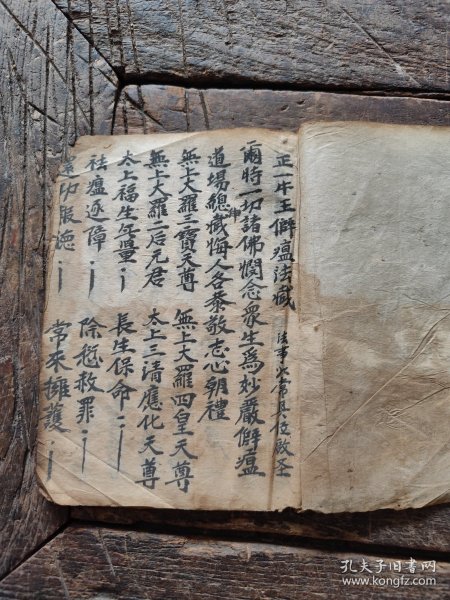 正一牛王僻瘟法懺 法事必常具位啟圣
爾時一切諸佛憫念眾生為妙嚴僻瘟
道場總懺悔人各恭敬志心朝禮
無上大羅三寶天尊 無上大羅四皇天尊
無上大羅二后元君 太上三清應化天尊
太上福生無量 長生保命
祛瘟逐障 除愆救罪
常來擁護
孔夫子旧书网
www.kongfz.com